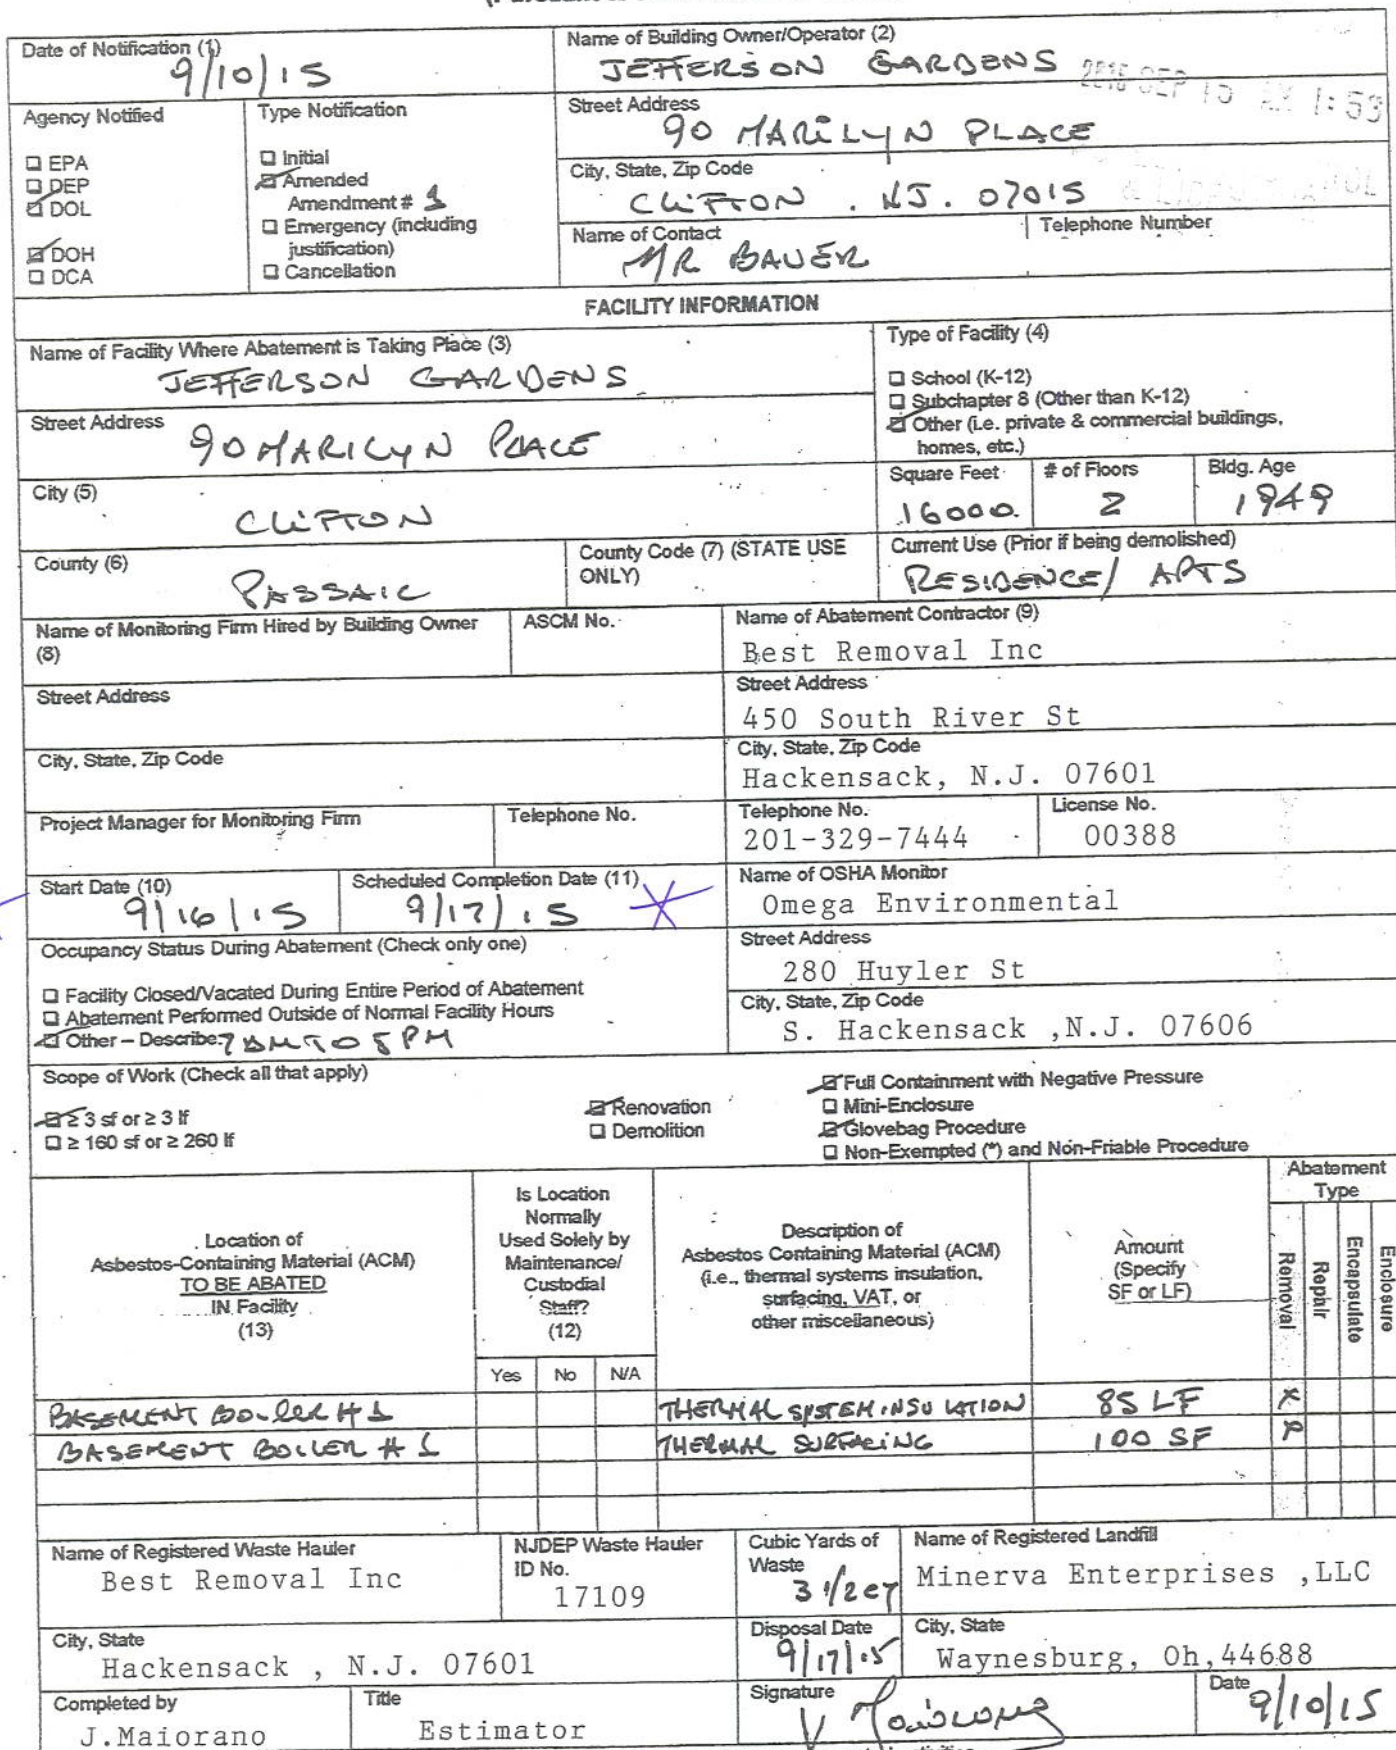 Date of Notification (1)
9/10/15
Name of Building Owner/Operator (2)
JEFFERSON GARDENS
Agency Notified
EPA
DEP
DOL
DOH
DCA
Type Notification
Initial
Amended
Amendment # 1
Emergency (including
justification)
Cancellation
Street Address
90 MARILYN PLACE
1:53
City, State, Zip Code
CLIFTON . NJ. 07015
Name of Contact
MR BAUER
Telephone Number
FACILITY INFORMATION
Name of Facility Where Abatement is Taking Place (3)
JEFFERSON GARDENS
Type of Facility (4)
School (K-12)
Subchapter 8 (Other than K-12)
Other (i.e. private & commercial buildings,
homes, etc.)
Street Address
90 MARILYN PLACE
City (5)
CLIFTON
Square Feet
16000.
# of Floors
2
Bldg. Age
1949
County (6)
PASSAIC
County Code (7) (STATE USE
ONLY)
Current Use (Prior if being demolished)
RESIDENCE/ APTS
Name of Monitoring Firm Hired by Building Owner
(8)
ASCM No.
Name of Abatement Contractor (9)
Best Removal Inc
Street Address
Street Address
450 South River St
City, State, Zip Code
City, State, Zip Code
Hackensack, N.J. 07601
Project Manager for Monitoring Firm
Telephone No.
Telephone No.
201-329-7444
License No.
00388
Start Date (10)
9/16/15
Scheduled Completion Date (11)
9/17/15
Name of OSHA Monitor
Omega Environmental
Occupancy Status During Abatement (Check only one)
Facility Closed/Vacated During Entire Period of Abatement
Abatement Performed Outside of Normal Facility Hours
Other – Describe: 7 AM TO 5 PM
Street Address
280 Huyler St
City, State, Zip Code
S. Hackensack ,N.J. 07606
Scope of Work (Check all that apply)
≥ 3 sf or ≥ 3 lf
≥ 160 sf or ≥ 260 lf
Renovation
Demolition
Full Containment with Negative Pressure
Mini-Enclosure
Glovebag Procedure
Non-Exempted (*) and Non-Friable Procedure
Location of
Asbestos-Containing Material (ACM)
TO BE ABATED
IN Facility
(13)
Is Location
Normally
Used Solely by
Maintenance/
Custodial
Staff?
(12)
Yes No N/A
Description of
Asbestos Containing Material (ACM)
(i.e., thermal systems insulation,
surfacing, VAT, or
other miscellaneous)
Amount
(Specify
SF or LF)
Abatement
Type
Removal
Repair
Encapsulate
Enclosure
BASEMENT BOILER # 1 THERMAL SYSTEM INSULATION 85 LF X
BASEMENT BOILER # 1 THERMAL SURFACING 100 SF X
Name of Registered Waste Hauler
Best Removal Inc
NJDEP Waste Hauler
ID No.
17109
Cubic Yards of
Waste
3 1/2 CY
Name of Registered Landfill
Minerva Enterprises ,LLC
City, State
Hackensack , N.J. 07601
Disposal Date
9/17/15
City, State
Waynesburg, Oh,44688
Completed by
J.Maiorano
Title
Estimator
Signature
Date
9/10/15